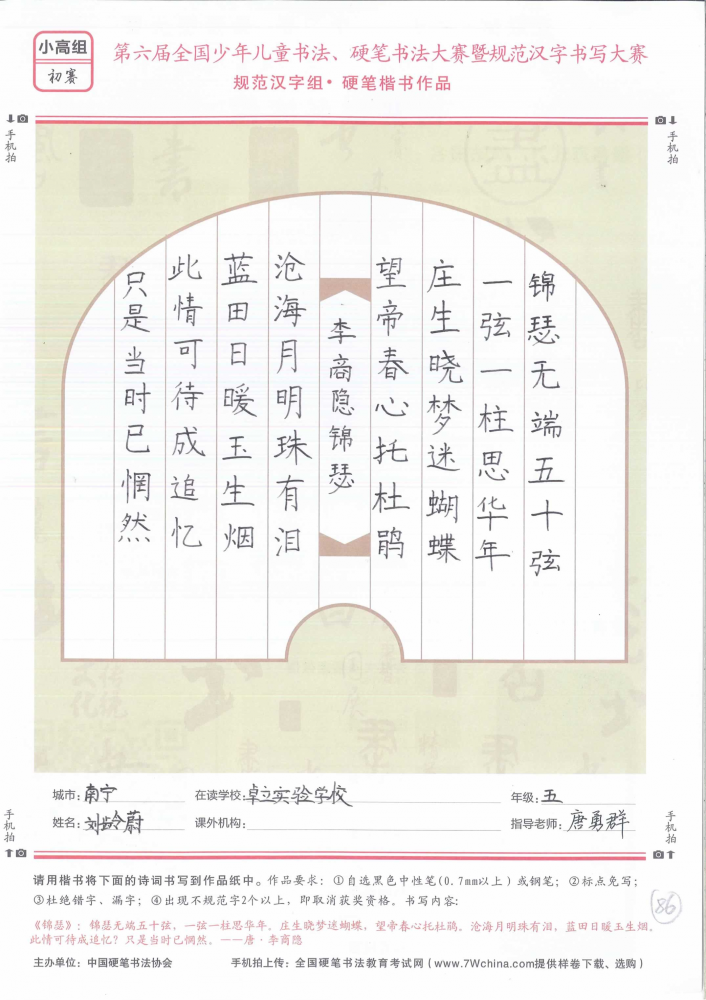 小高组
初赛
第六届全国少年儿童书法、硬笔书法大赛暨规范汉字书写大赛
规范汉字组·硬笔楷书作品
手机拍
手机拍
锦瑟无端五十弦
一弦一柱思华年
庄生晓梦迷蝴蝶
望帝春心托杜鹃
李商隐锦瑟
沧海月明珠有泪
蓝田日暖玉生烟
此情可待成追忆
只是当时已惘然
城市:南宁
在读学校:卓立实验学校
年级:五
姓名:刘龄蔚
课外机构:
指导老师:唐勇群
手机拍
手机拍
请用楷书将下面的诗词书写到作品纸中。作品要求:①自选黑色中性笔(0.7mm以上)或钢笔;②标点免写;
③杜绝错字、漏字;④出现不规范字2个以上,即取消获奖资格。书写内容:
86
《锦瑟》:锦瑟无端五十弦,一弦一柱思华年。庄生晓梦迷蝴蝶,望帝春心托杜鹃。沧海月明珠有泪,蓝田日暖玉生烟。
此情可待成追忆?只是当时已惘然。——唐·李商隐
主办单位:中国硬笔书法协会
手机拍上传:全国硬笔书法教育考试网(www.7Wchina.com提供样卷下载、选购)